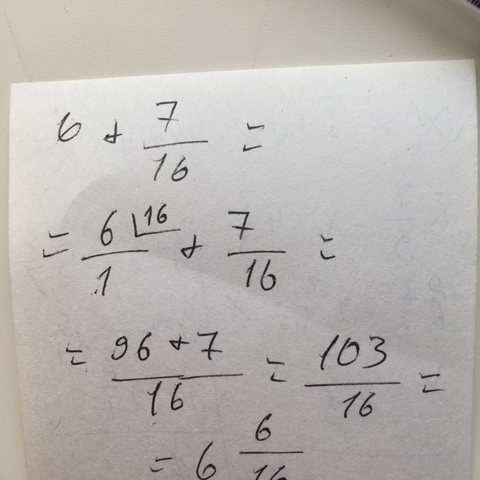 6 + 7/16 =
= 6/1 ⌊16 + 7/16 =
= 96 + 7/16 = 103/16 =
= 6 6/16